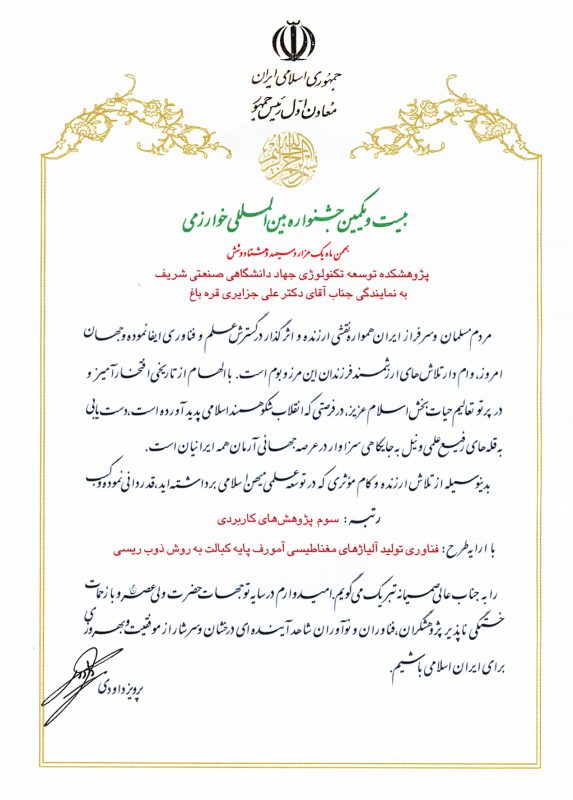 جمهوری اسلامی ایران
معاون اول رئیس جمهور
بسم الله الرحمن الرحیم
بیست و یکمین جشنواره بین‌المللی خوارزمی
بهمن ماه یک هزار و سیصد و هشتاد و شش
پژوهشکده توسعه تکنولوژی جهاد دانشگاهی صنعتی شریف
به نمایندگی جناب آقای دکتر علی جزایری قره باغ
مردم مسلمان و سرفراز ایران همواره نقشی ارزنده و اثرگذار در گسترش علم و فناوری ایفا نموده و جهان
امروز، وام دار تلاش‌های ارزشمند فرزندان این مرز و بوم است. با الهام از تاریخی افتخارآمیز و
در پرتو تعالیم حیات بخش اسلام عزیز، در فرصتی که انقلاب شکوهمند اسلامی پدید آورده است، دست‌یابی
به قله‌های رفیع علمی و نیل به جایگاهی سزاوار در عرصه جهانی آرمان همه ایرانیان است.
بدینوسیله از تلاش ارزنده و گام مؤثری که در توسعه علمی میهن اسلامی برداشته‌اید، قدردانی نموده و کسب
رتبه: سوم پژوهش‌های کاربردی
با ارایه طرح: فناوری تولید آلیاژهای مغناطیسی آمورف پایه کبالت به روش ذوب ریسی
را به جناب عالی صمیمانه تبریک می‌گویم. امیدوارم در سایه توجهات حضرت ولی عصر و با زحمات
خستگی ناپذیر پژوهشگران، فناوران و نوآوران شاهد آینده‌ای درخشان و سرشار از موفقیت و بهروزی
برای ایران اسلامی باشیم.
پرویز داودی